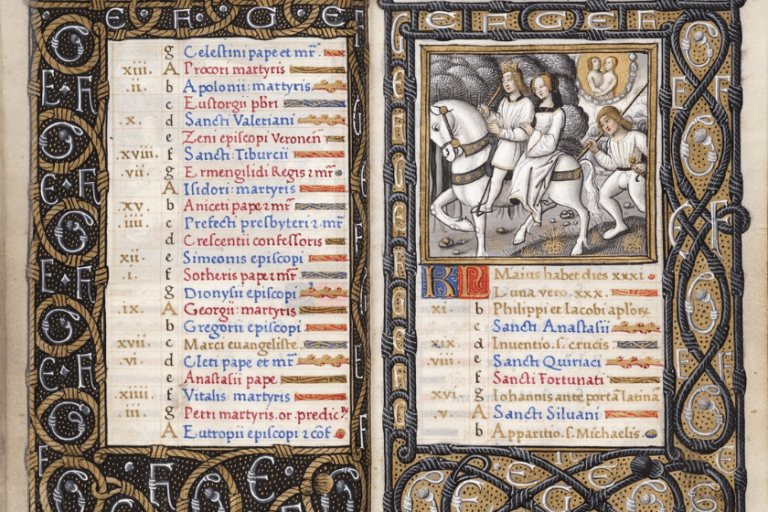 g Celestini pape et mr̃.
xiii. A Procori martyris
.ii. b Apolonii: martyris
c Eustorgii pb̃ri
.x. d Sancti Valeriani
e Zeni episcopi Veronen̄
.xviii. f Sancti: Tiburcii
vii. g Ermengildi Regis ⁊ mr̃
A Isidori: martyris
xv. b Aniceti pape ⁊ mr̃
.iiii. c Prefecti presbyteri ⁊ mr̃
d Crescentii confessoris
xii. e Simeonis episcopi
.i. f Sotheris pape ⁊ mr̃
g Dionysii episcopi
.ix. A Georgii: martyris
b Gregorii episcopi
xvii. c Marci euangeliste.
.vi. d Cleti pape et mr̃
e Anastasii pape
xiiii. f Vitalis martyris
iii. g Petri martyris. or. predic
A Eutropii episcopi ⁊ cõf
KL Maius habet dies xxxi
Luna vero .xxx.
xi. b Philippi et Iacobi aplor̃
c Sancti Anastasii
xix. d Inuentio .s. crucis
viii. e Sancti Quiriaci
f Sancti Fortunati
xvi. g Iohannis ante portã latinã
.v. A Sancti Siluani
b Apparitio .s. Michaelis